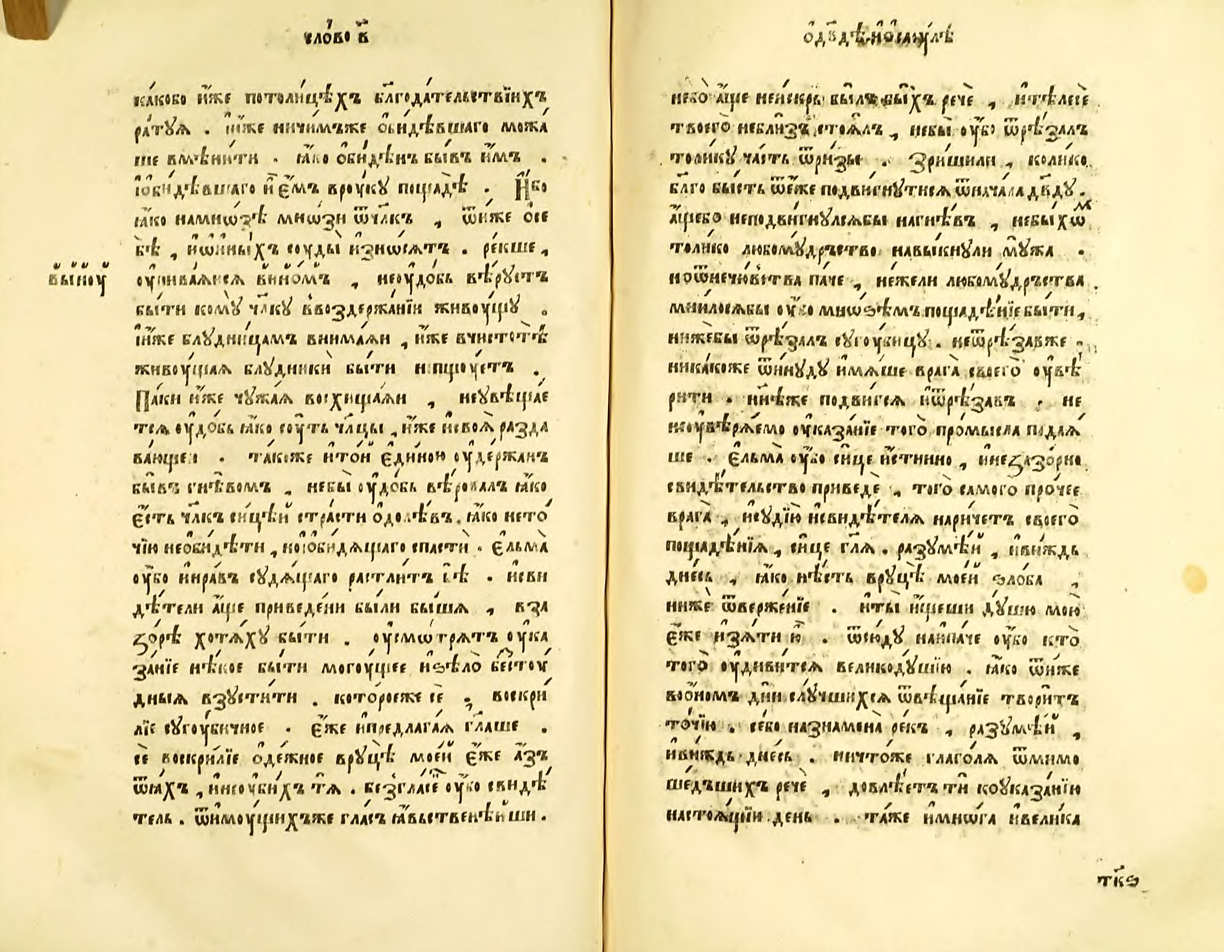 сло́во в҃
ка́кобо и҆́же потоли́цѣхъ бл҃года́тельствїихъ
ра́туѧ . и҆́иже ничи́мъже ѻ҆би́дѣвшаго можа́
ше вмѣни́ти . ꙗ҆́ко ѻ҆би́дѣнъ бы́въ и҆́мъ .
і҆ѻби́дѣвшаго и҆ є҆́мъ вроꙋ́кꙋ пощадѣ̀ . И҆́бо
ꙗ҆́ко намно́ѕѣ мно́ѕи ѿчл҃къ , ѿи́же ѻ҆се
бѣ̀ , и҆ѡ҆и́ныхъ соꙋды̀ и҆зно́сѧтъ . ре́кше ,
ᲂу҆пива́ѧисѧ вино́мъ , неᲂу҆до́бь вѣ́рꙋетъ
бы́ти комꙋ̀ чл҃кꙋ ввоздержа́нїи живоꙋ́щꙋ .
и҆́иже блꙋдни́цамъ внима́ѧи , и҆́же вчистотѣ̀
живоꙋ́щаѧ блꙋдникѝ бы́ти непщꙋ́етъ .
Па́ки и҆́же чꙋжа́ѧ восхища́ѧи , неꙋвѣща́е
тсѧ ᲂу҆до́бь ꙗ҆́ко сꙋ́ть чл҃цы , и҆́же и҆своѧ̀ разда
ва́ющеи . та́коже и҆то́и є҆ди́ною ᲂу҆де́ржанъ
бы́въ гнѣ́вомъ , небы̀ ᲂу҆до́бь вѣ́ровалъ ꙗ҆́ко
є҆́сть чл҃къ сицѣ́й стра́сти ѻ҆долѣ́въ . ꙗ҆́ко нето́
чїю неѻби́дѣти , но́і҆ѻби́дѧщаго спастѝ . є҆льма̀
ᲂу҆́бо и҆нра́въ сꙋдѧ́щаго растли́тъ бѣ̀ . и҆сви
дѣ́тели а҆́ще приведе́ни бы́ли бы́шѧ , вза
зо́рѣ хотѧ́хꙋ бы́ти . ᲂу҆смѡ́трѧтъ ᲂу҆ка
за́нїе нѣ́кое бы́ти могꙋ́щее и҆ѕѣлѡ̀ бестоу
дныѧ взꙋсти́ти . кото́роеже сѐ , воскри́
лїе сꙋгоꙋ́бичное . є҆́же и҆предлага́ѧ гл҃аше .
сѐ воскри́лїе ѻ҆де́жное врꙋцѣ̀ мое́й є҆́же а҆́зъ
ѿѧ́хъ , и҆неоуби́хъ тѧ̀ . безгла́сенъ ᲂу҆́бо свидѣ́
тель . ѿимоꙋ́щихъже гла́съ ꙗ҆́вьственѣ́йши .
ѻ҆дв҃дѣ и҆ ѻ҆саꙋ́лѣ
не́бо а҆́ще неи́скрь бы́лъбы́хъ речѐ , и҆тѣлесѐ
твоего̀ небли́зъ стоѧ́лъ , небы̀ ᲂу҆́бо ѿрѣ́залъ
толи́кꙋ ча́сть ѿри́зы . Зри́шили , коли́ко
бл҃го бы́сть ѿе́же подви́гнꙋтисѧ ѿнача́ла дв҃дꙋ .
а҆́щебо неподви́гнꙋлсѧбы нагнѣ́въ , небы́хѡᷨ
толи́ко любомꙋ́дрьство навы́кнꙋли мꙋ́жа .
ноѿнечю́вства па́че , не́жели любомꙋ́дрьства
мни́лосѧбы ᲂу҆́бо мно́ѕѣмъ пощадѣ́нїе бы́ти ,
ни́жебы ѿрѣ́залъ сꙋгоꙋ́бицꙋ . неѿрѣза́вже .
ника́коже ѿинꙋ́дꙋ и҆мѧ́ше врага̀ своего̀ ᲂу҆вѣ́
рити . нн҃ѣже подви́гсѧ и҆ѿрѣза́въ . не
неоувѣрѧ́емо ᲂу҆каза́нїе того̀ про́мысла подаѧ́
ше . є҆льма̀ ᲂу҆́бо си́це и҆́стинно , и҆незазо́рно
свидѣ́тельство приведѐ , того̀ самого̀ про́чее
врага̀ , и҆сꙋдїю̀ и҆свидѣ́телѧ нарече́тъ своего̀
пощадѣ́нїѧ , си́це гл҃ѧ . разꙋмѣ́й , и҆ви́ждь
дне́сь , ꙗ҆́ко нѣ́сть врꙋцѣ̀ мое́й ѕло́ба ,
нижѐ ѿверже́нїе . и҆ты̀ и҆́щеши дꙋ́шю мою̀
є҆́же и҆зѧ́ти ю҆̀ . ѿсю́дꙋ наипа́че ᲂу҆́бо кто̀
того̀ ᲂу҆диви́тсѧ великодꙋ́шїю . ꙗ҆́ко ѿи́же
во́ѻномъ днѝ слꙋ́чшихсѧ ѿвѣща́нїе твори́тъ
то́чїю . се́бо назнамена̀ ре́къ , разꙋмѣ́й ,
и҆ви́ждь дне́сь . ничто́же глаго́лѧ ѿмимо
ше́дъшихъ речѐ , довлѣ́етъ ти коꙋказа́нїю
настоѧ́щїи де́нь . та́же и҆мно́га и҆вели́ка